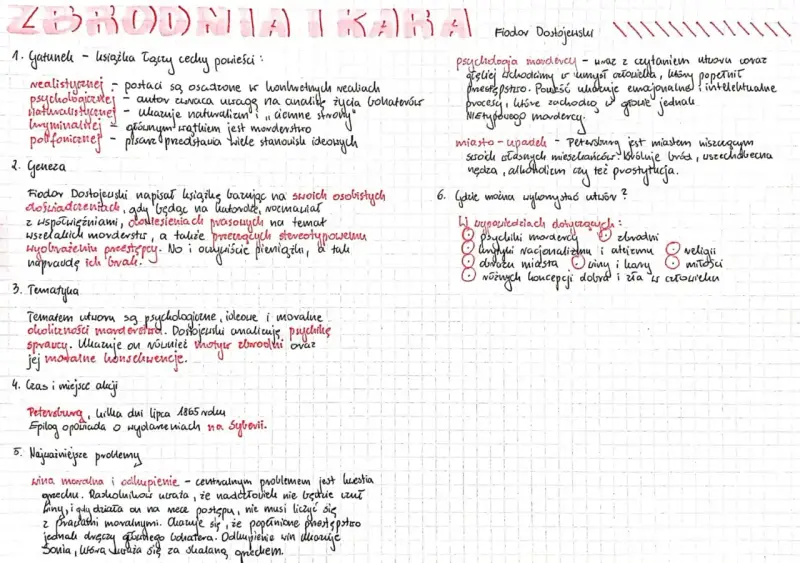 ZBRODNIA I KARA
Fiodor Dostojewski
1. Gatunek – książka łączy cechy powieści:
realistycznej – postaci są osadzone w konkretnych realiach
psychologicznej – autor zwraca uwagę na analizę życia bohaterów
naturalistycznej – ukazuje naturalizm i „ciemne strony"
kryminalnej – głównym wątkiem jest morderstwo
polifonicznej – pisarz przedstawia wiele stanowisk ideowych
2. Geneza
Fiodor Dostojewski napisał książkę bazując na swoich osobistych
doświadczeniach, gdy będąc na katordze, rozmawiał
z współwięźniami, doniesieniach prasowych na temat
wszelakich morderstw, a także przeczących stereotypowemu
wyobrażeniu przestępcy. No i oczywiście pieniążki, a tak
naprawdę ich brak.
3. Tematyka
Tematem utworu są psychologiczne, ideowe i moralne
okoliczności morderstwa. Dostojewski analizuje psychikę
sprawcy. Ukazuje on również motyw zbrodni oraz
jej moralne konsekwencje.
4. Czas i miejsce akcji
Petersburg, kilka dni lipca 1865 roku
Epilog opowiada o wydarzeniach na Syberii.
5. Najważniejsze problemy
wina moralna i odkupienie – centralnym problemem jest kwestia
grzechu. Raskolnikow uważa, że nadczłowiek nie będzie czuł
winy, i gdy działa on na rzecz postępu, nie musi liczyć się
z prawami moralnymi. Okazuje się, że popełnione przestępstwo
jednak dręczy głównego bohatera. Odkupienie win ukazuje
Sonia, która uważa się za skalaną grzechem.
psychologia mordercy – wraz z czytaniem utworu coraz
głębiej wchodzimy w umysł człowieka, który popełnił
przestępstwo. Powieść ukazuje emocjonalne i intelektualne
procesy, które zachodzą w głowie jednak
nietypowego mordercy.
miasto – upadek – Petersburg jest miastem niszczącym
swoich własnych mieszkańców. Króluje bród, wszechobecna
nędza, alkoholizm czy też prostytucja.
6. Gdzie można wykorzystać utwór?
W wypowiedziach dotyczących:
psychiki mordercy zbrodni
krytyki racjonalizmu i ateizmu religii
obrazu miasta winy i kary miłości
różnych koncepcji dobra i zła w człowieku